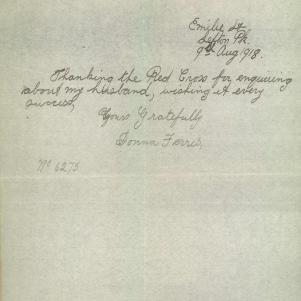 Emilie St
Sefton Pk.
9th Aug 1918.
Thanking the Red Cross for enquiring
about my husband, wishing it every
success,
Yours Gratefully
Donna Ferris.
No 6275